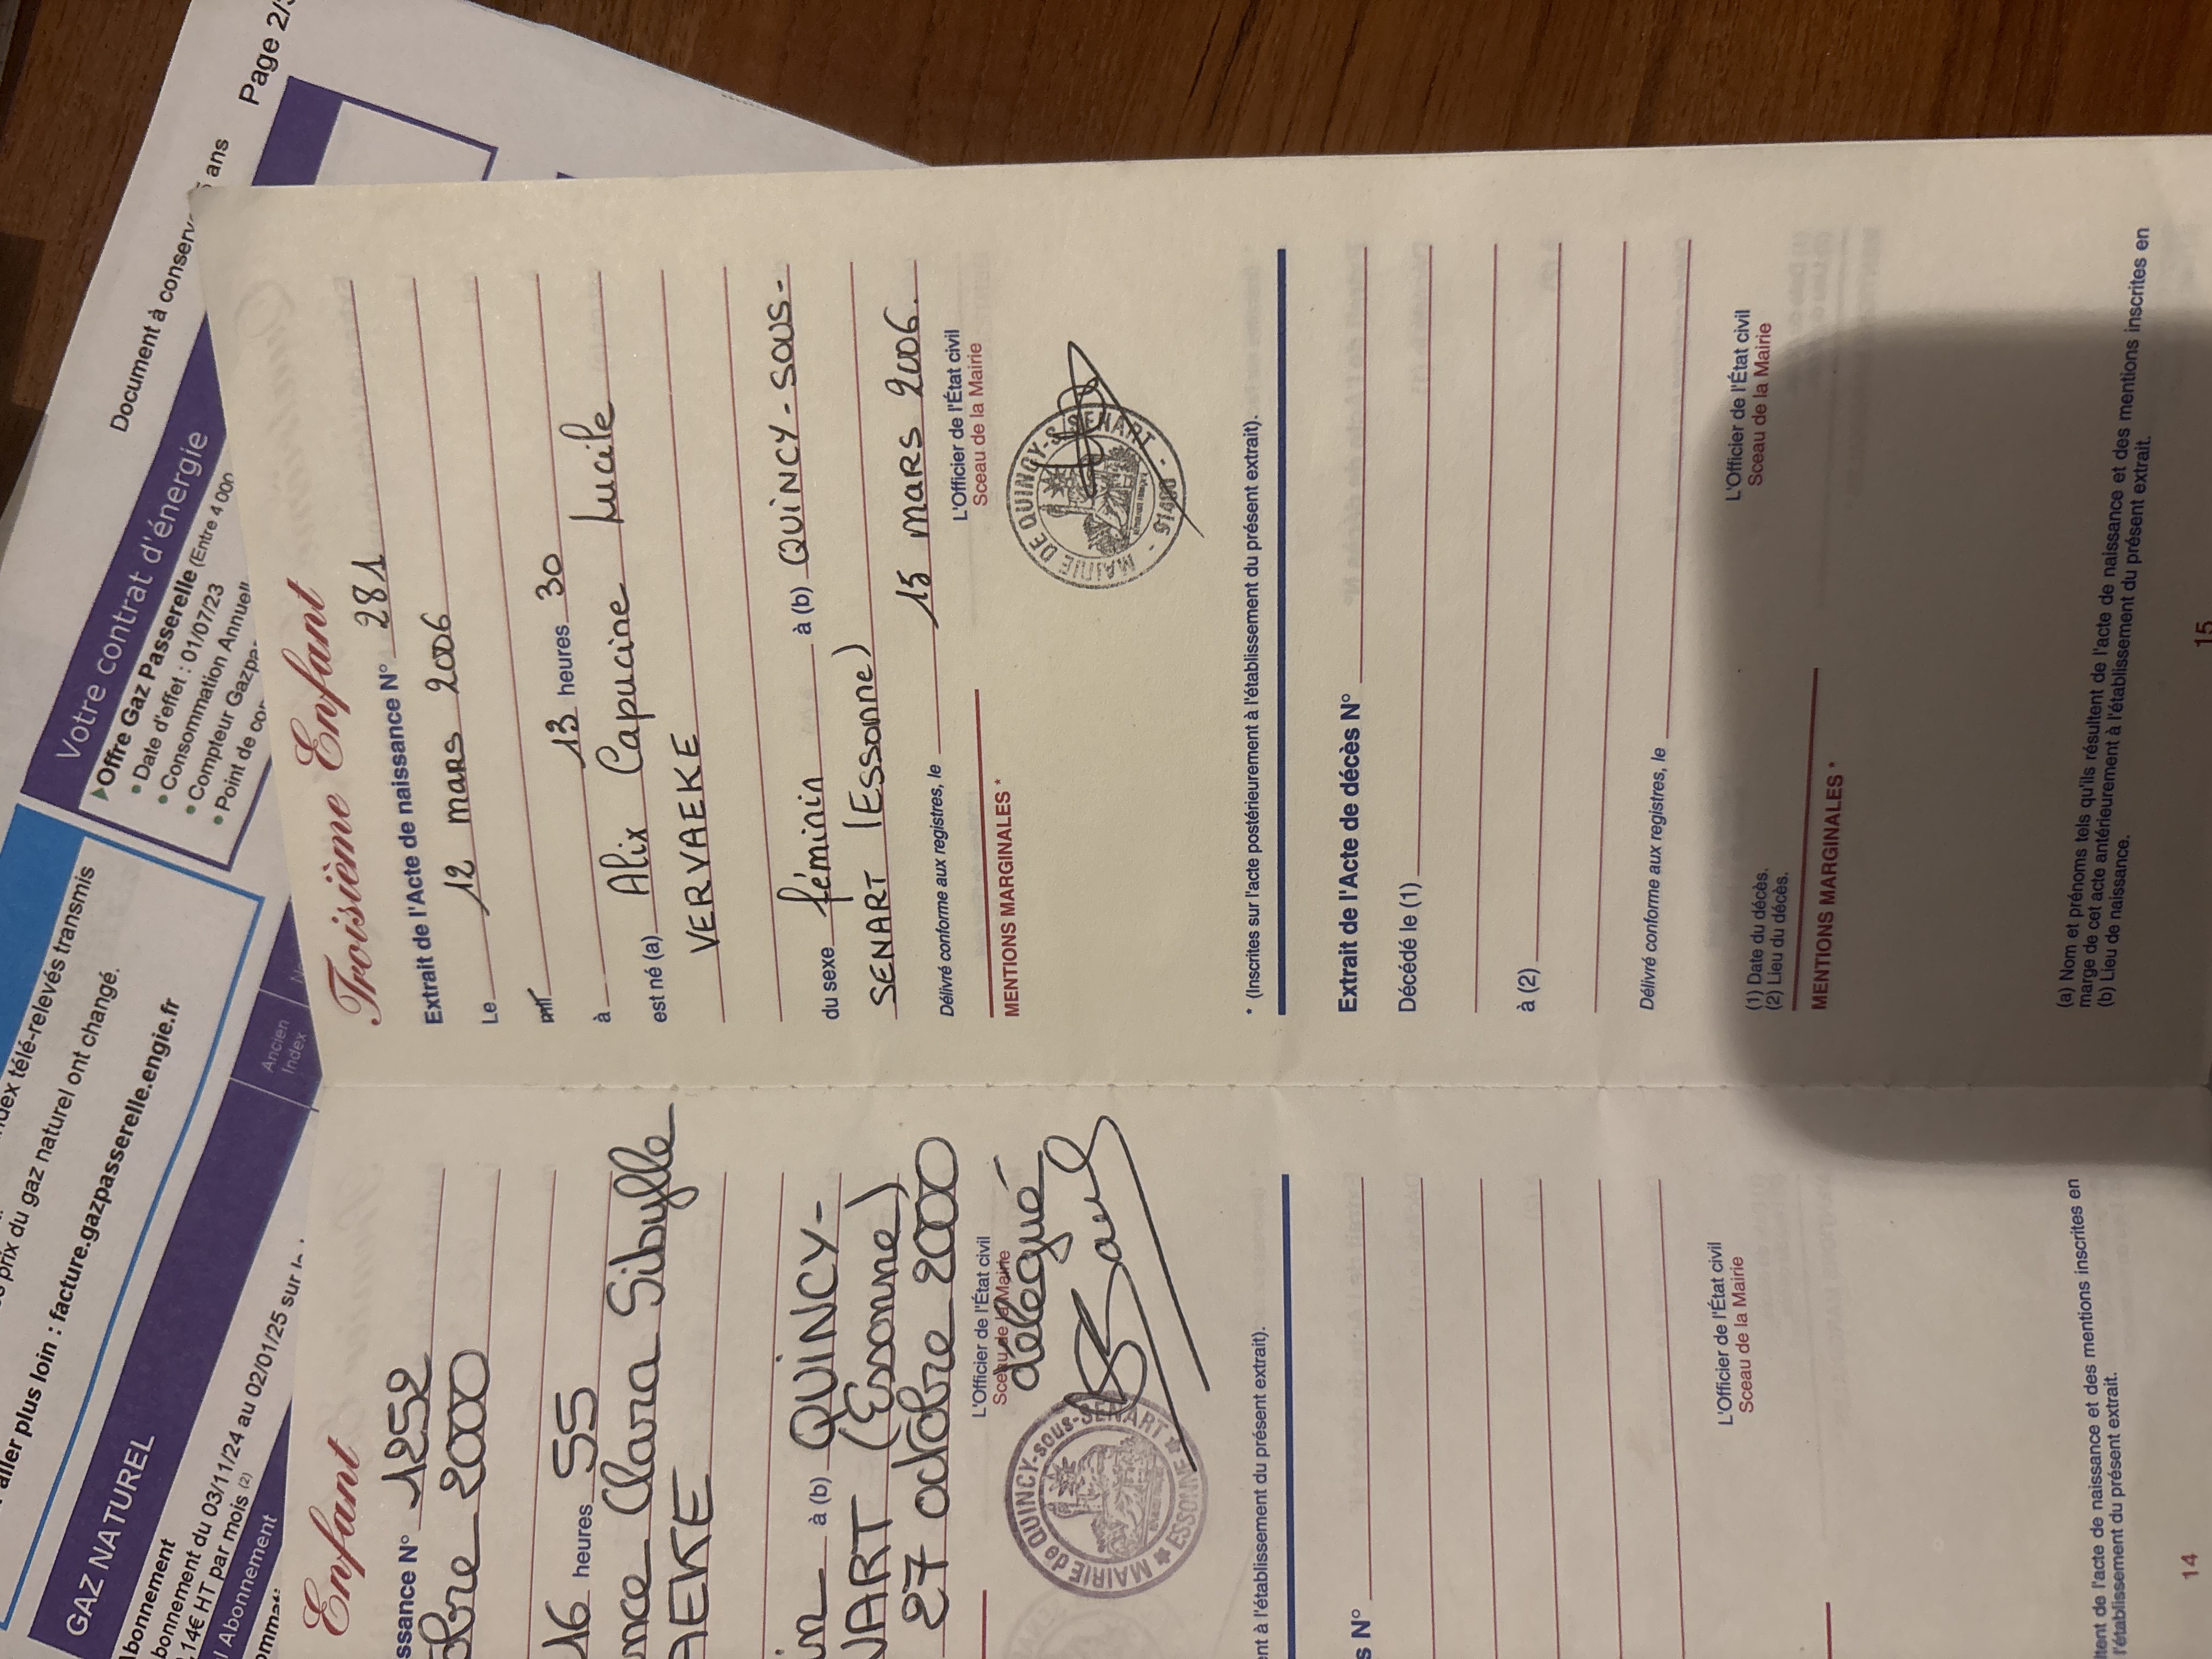 Page 2/
Document à conserv
5 ans
Votre contrat d'énergie
Offre Gaz Passerelle (Entre 4 000
• Date d'effet : 01/07/23
• Consommation Annuell
• Compteur Gazpa
• Point de co
index télé-relevés transmis
prix du gaz naturel ont changé.
aller plus loin : facture.gazpasserelle.engie.fr
GAZ NATUREL
Ancien
Index
Abonnement
bonnement du 03/11/24 au 02/01/25 sur
,14€ HT par mois (2)
l Abonnement
Enfant
ssance N° 1252
obre 2000
16 heures 55
nce Clara Sibylle
AEKE
in à (b) QUINCY-
NART (Essonne)
27 octobre 2000
L'Officier de l'État civil
Sceau de la Mairie
délégué
MAIRIE de QUINCY-sous-SENART
ESSONNE
nt à l'établissement du présent extrait).
s N°
L'Officier de l'État civil
Sceau de la Mairie
ltent de l'acte de naissance et des mentions inscrites en
l'établissement du présent extrait.
14
Troisième Enfant
Extrait de l'Acte de naissance N° 281
Le 12 mars 2006
à 13 heures 30
est né (a) Alix Capucine Lucile
VERVAEKE
du sexe féminin à (b) QUINCY-SOUS-
SENART (Essonne)
Délivré conforme aux registres, le 15 mars 2006.
L'Officier de l'État civil
Sceau de la Mairie
MENTIONS MARGINALES *
MAIRIE DE QUINCY-S-SENART - 91480 -
* (Inscrites sur l'acte postérieurement à l'établissement du présent extrait).
Extrait de l'Acte de décès N°
Décédé le (1)
à (2)
Délivré conforme aux registres, le
L'Officier de l'État civil
Sceau de la Mairie
(1) Date du décès.
(2) Lieu du décès.
MENTIONS MARGINALES *
(a) Nom et prénoms tels qu'ils résultent de l'acte de naissance et des mentions inscrites en
marge de cet acte antérieurement à l'établissement du présent extrait.
(b) Lieu de naissance.
15